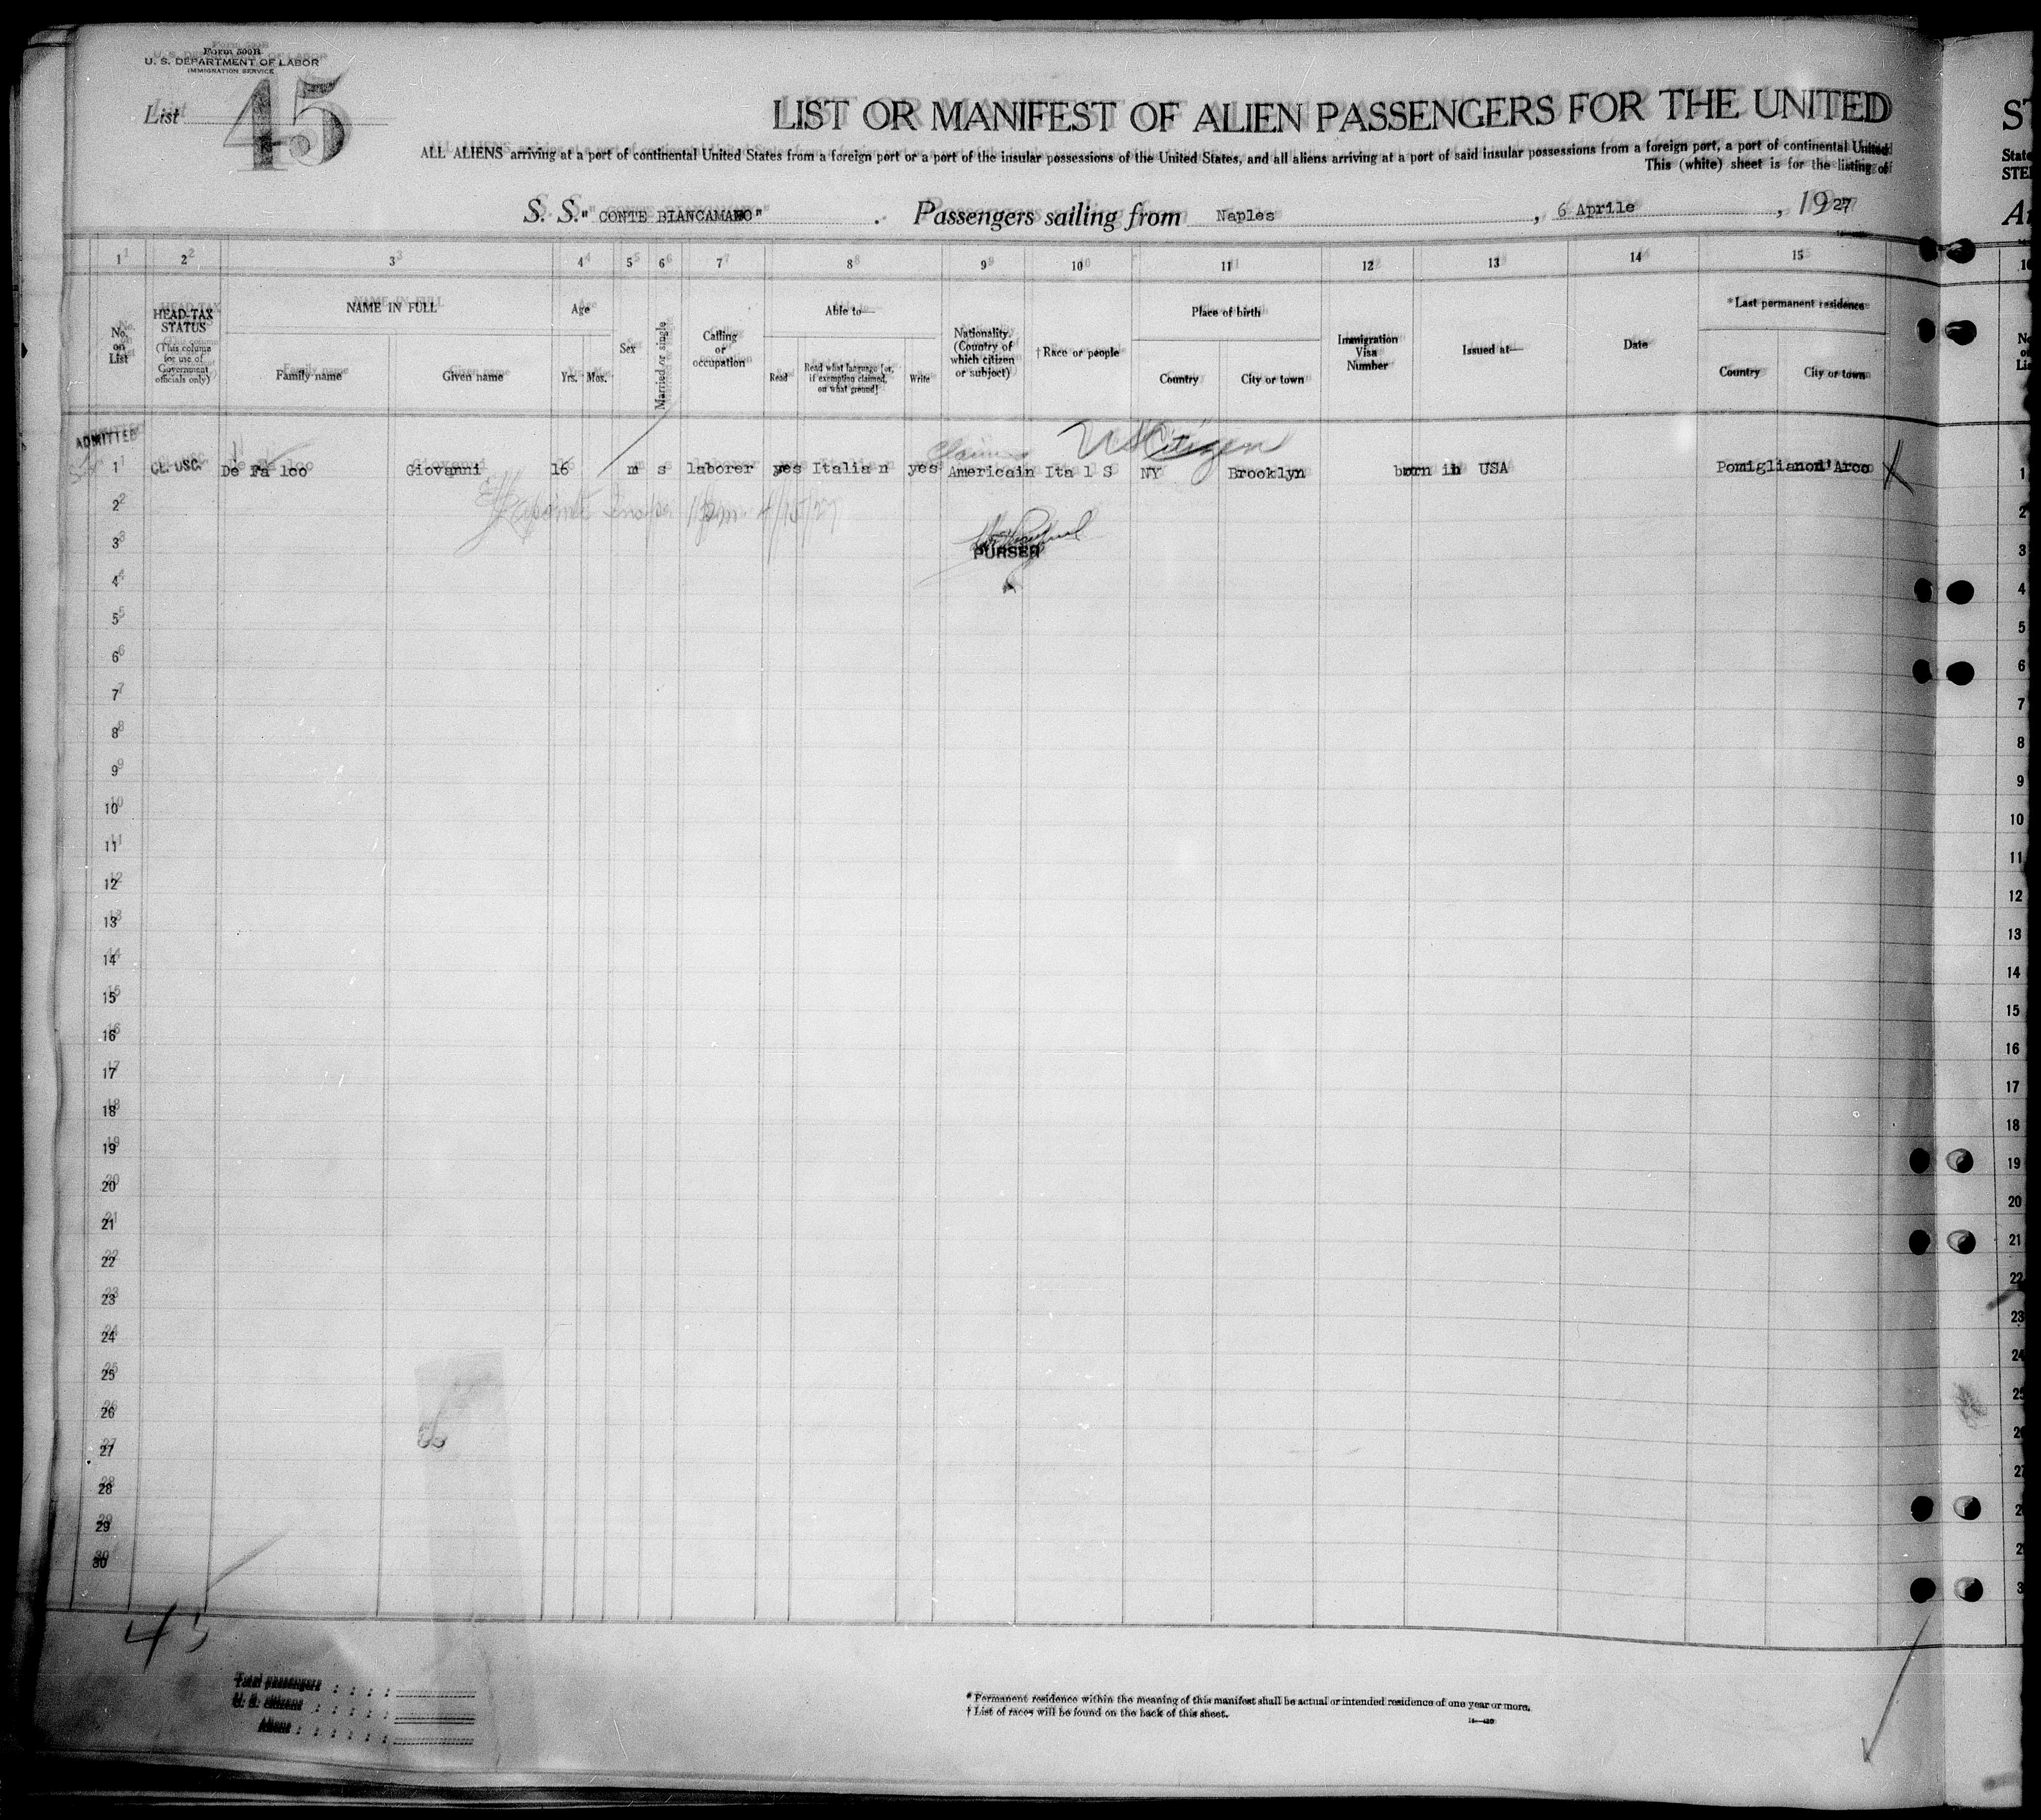 Form 500B
U. S. DEPARTMENT OF LABOR
IMMIGRATION SERVICE
List 45
LIST OR MANIFEST OF ALIEN PASSENGERS FOR THE UNITED
ALL ALIENS arriving at a port of continental United States from a foreign port or a port of the insular possessions of the United States, and all aliens arriving at a port of said insular possessions from a foreign port, a port of continental United
This (white) sheet is for the listing of
S. S. " CONTE BIANCAMANO" . Passengers sailing from Naples , 6 Aprile , 1927
1 2 3 4 5 6 7 8 9 10 11 12 13 14 15
No. on List
HEAD-TAX STATUS (This column for use of Government officials only)
NAME IN FULL
Family name
Given name
Age
Yrs. Mos.
Sex
Married or single
Calling or occupation
Able to—
Read
Read what language [or, if exemption claimed, on what ground]
Write
Nationality. (Country of which citizen or subject)
† Race or people
Place of birth
Country
City or town
Immigration Visa Number
Issued at—
Date
* Last permanent residence
Country
City or town
ADMITTED
Claims US Citizen
1 CL. USC. De Fa lco Giovanni 16 m s laborer yes Italia n yes Americain Ita l S NY Brooklyn born in USA Pomigliano d'Arco X 1
4/15/27
2 2
3 PURSER 3
4 4
5 5
6 6
7 7
8 8
9 9
10 10
11 11
12 12
13 13
14 14
15 15
16 16
17 17
18 18
19 19
20 20
21 21
22 22
23 23
24 24
25
26
27
28
29
30
45
Total passengers : : : :
U. S. citizens : : : : :
Aliens : : : : : :
* Permanent residence within the meaning of this manifest shall be actual or intended residence of one year or more.
† List of races will be found on the back of this sheet.